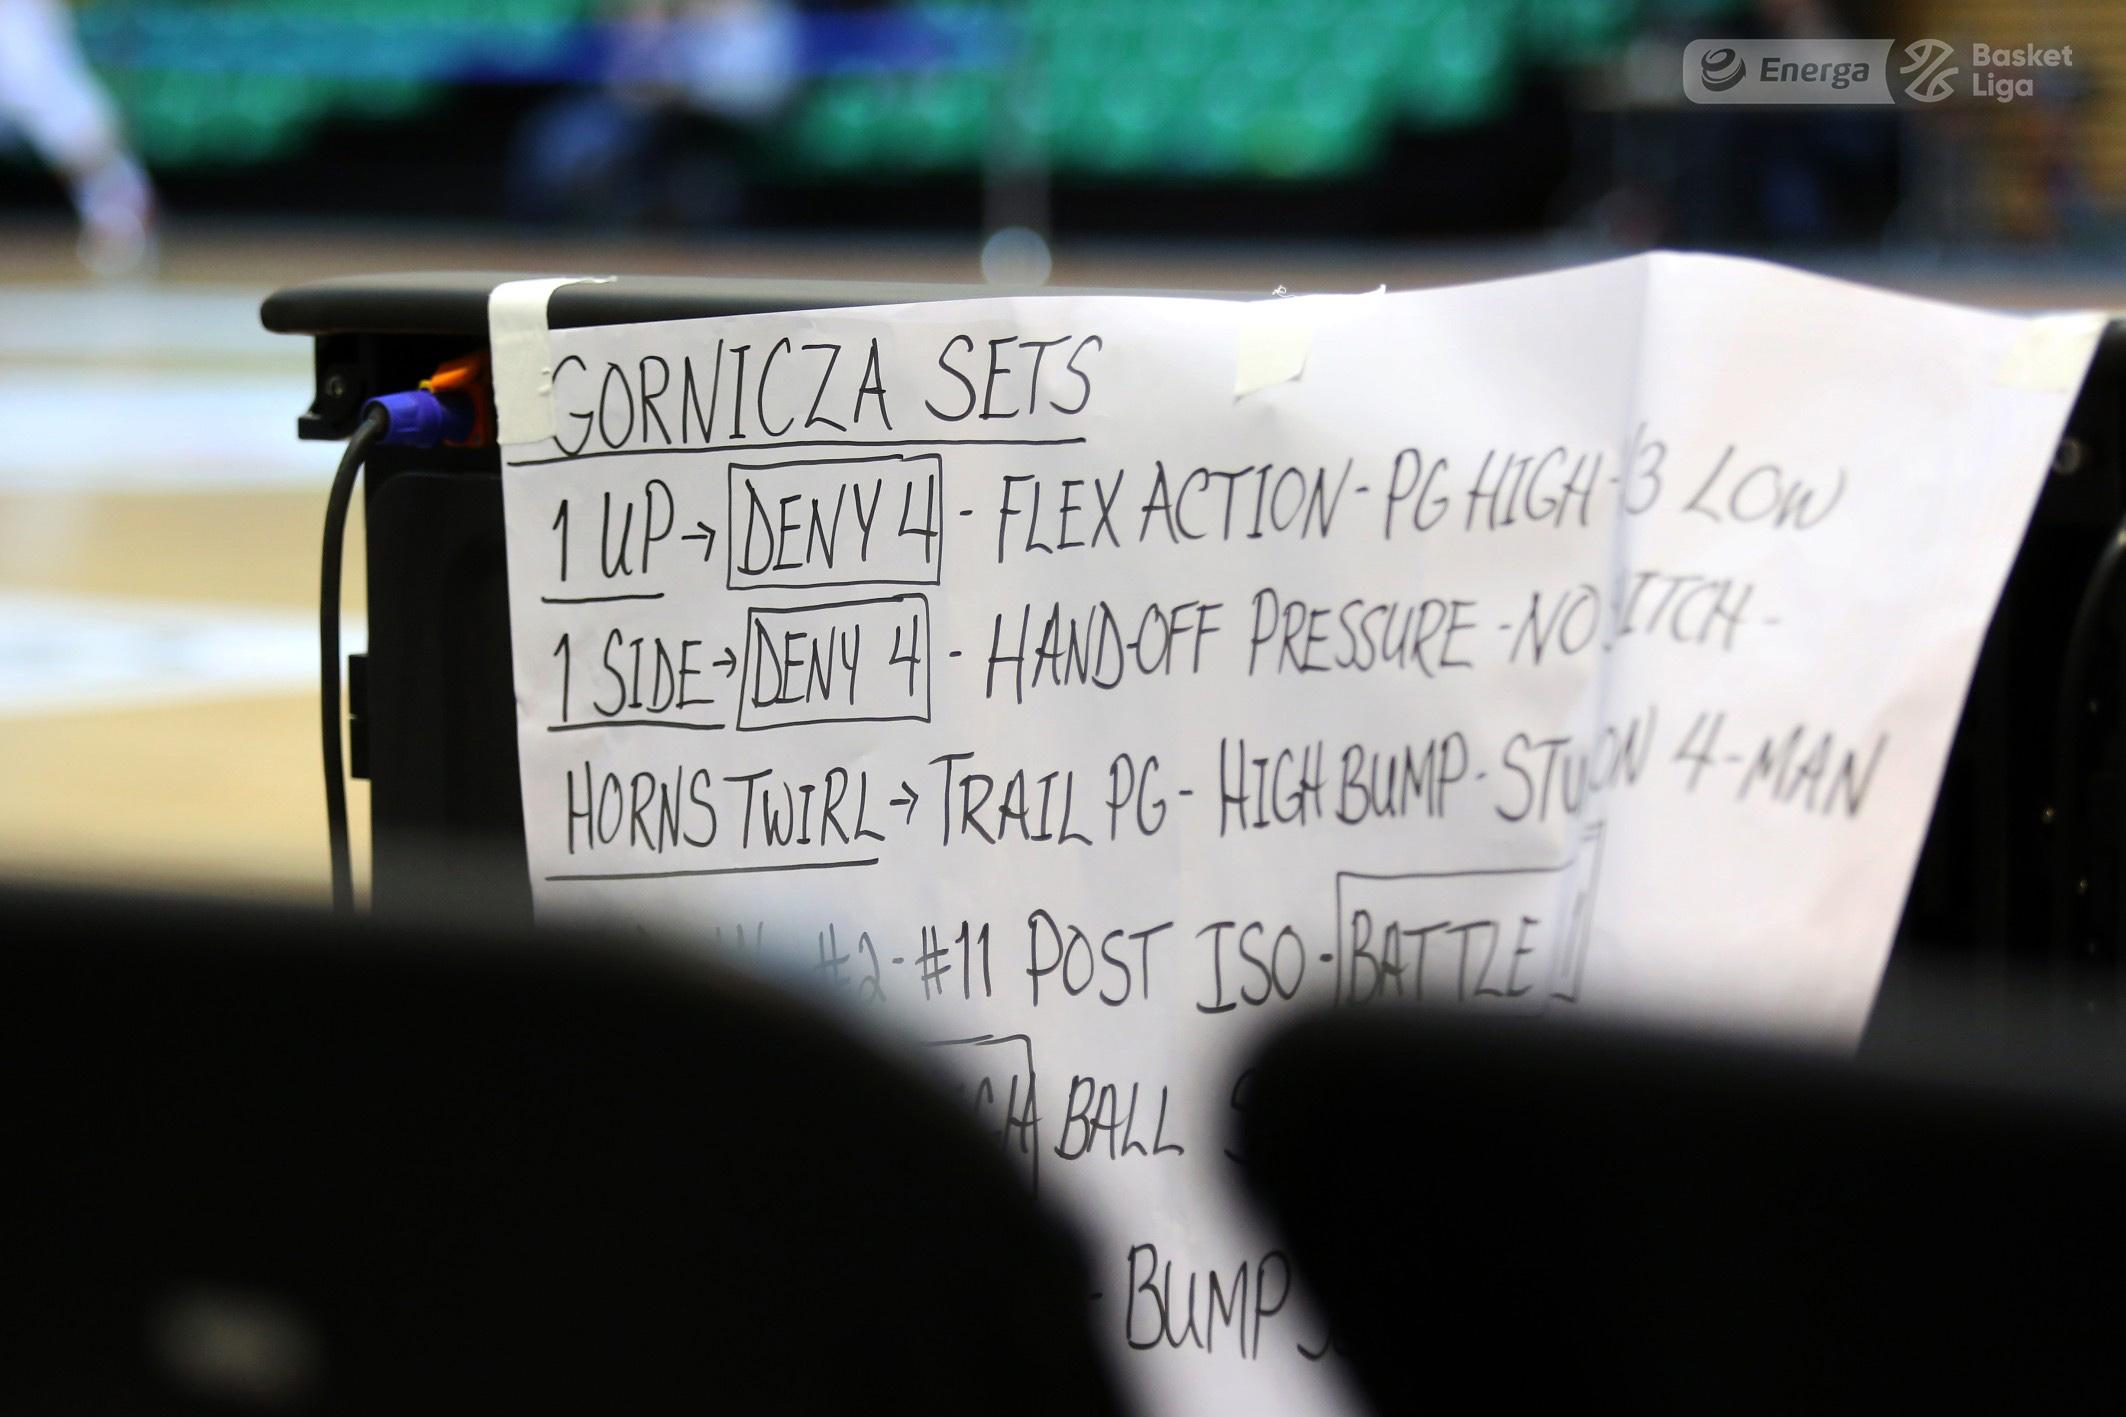 Energa Basket Liga
GORNICZA SETS
1 UP → DENY 4 - FLEX ACTION - PG HIGH - 3 LOW
1 SIDE → DENY 4 - HAND-OFF PRESSURE - NO ITCH -
HORNS TWIRL → TRAIL PG - HIGH BUMP - ON 4-MAN
#2 - #11 POST ISO - BATTLE
BALL
- BUMP